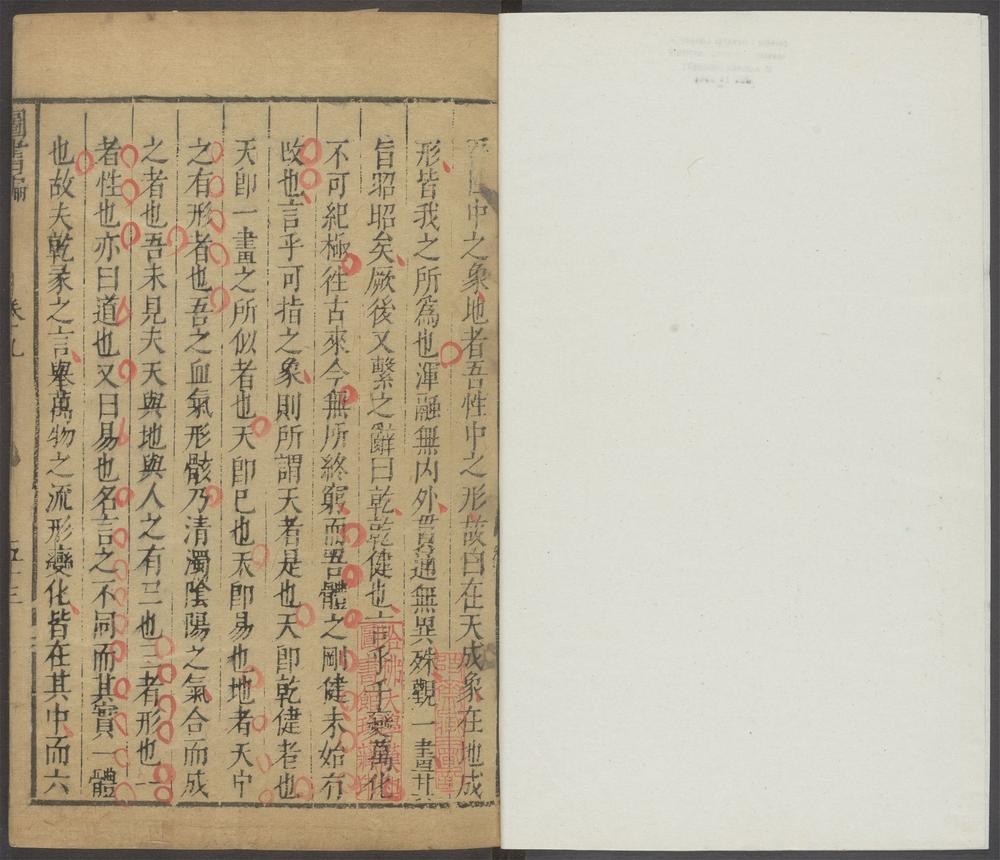 中之象地者吾性中之形故曰在天成象在地成
形皆我之所為也渾融無内外貫通無異殊觀一畫
旨昭昭矣厥後又繫之辭曰乾乾健也言乎千變萬化
不可紀極往古來今無所終窮而吾體之剛健未始有
改也言乎可指之象則所謂天者是也天即乾健者也
天即一畫之所似者也天即已也天即易也地者天中
之有形者也吾之血氣形骸乃清濁陰陽之氣合而成
之者也吾未見夫天與地與人之有三也三者形也一
者性也亦曰道也又曰易也名言之不同而其實一體
也故夫乾彖之言舉萬物之流形變化皆在其中而六
圖書編